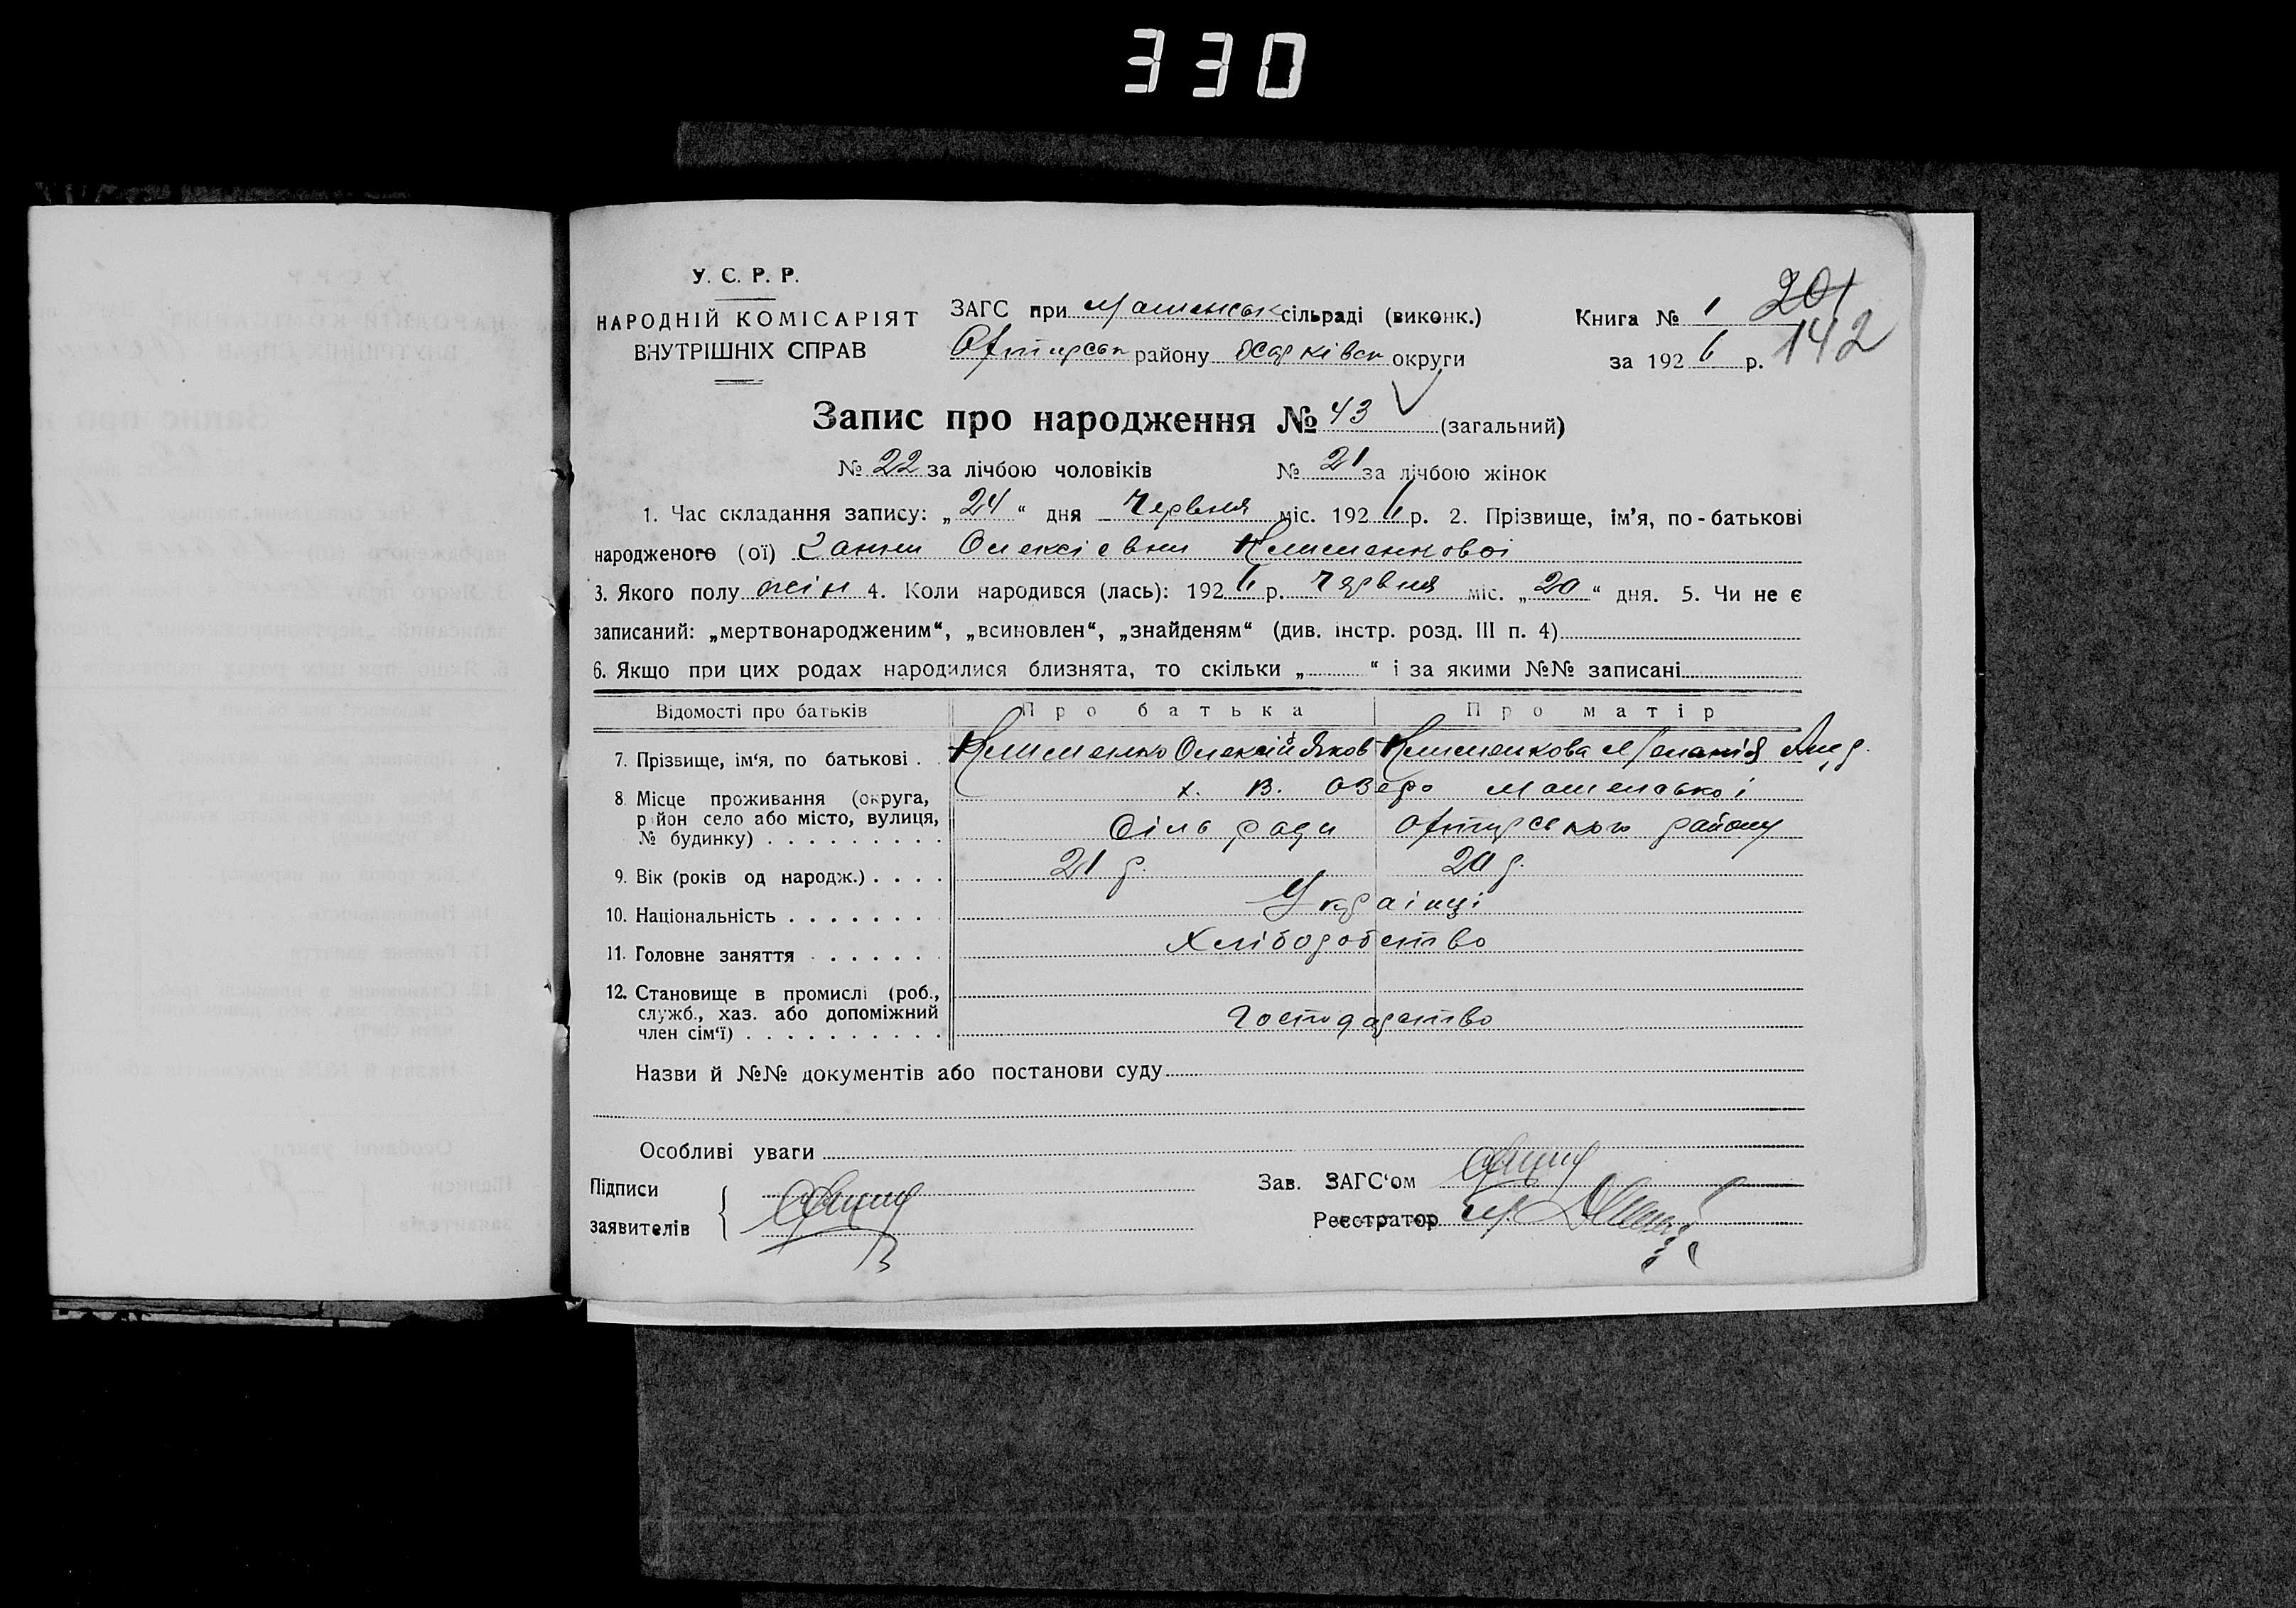 330
У. С. Р. Р.
НАРОДНІЙ КОМІСАРІЯТ
ВНУТРІШНІХ СПРАВ
ЗАГС при Машенськ сільраді (виконк.)
Охтирськ району Харківськ округи
Книга № 1 201
за 1926 р. 142
Запис про народження № 43 (загальний)
№ 22 за лічбою чоловіків № 21 за лічбою жінок
1. Час складання запису: „24“ дня Червня міс. 1926 р. 2. Прізвище, ім’я, по-батькові
народженого (ої) Ганни Олексієвни Клименкової
3. Якого полу жін 4. Коли народився (лась): 1926 р. Червня міс. „20“ дня. 5. Чи не є
записаний: „мертвонародженим“, „всиновлен“, „знайденям“ (див. інстр. розд. III п. 4)
6. Якщо при цих родах народилися близнята, то скільки „ “ і за якими №№ записані
Відомості про батьків Про батька Про матір
7. Прізвище, ім‘я, по батькові . Клименко Олексій Яков Клименкова Меланія
8. Місце проживання (округа, х. В. Озеро Машенської
район село або місто, вулиця,
№ будинку) . . . . . . . . . Сіль ради Охтирського району
9. Вік (років од народж.) . . . . 21 р. 20 р.
10. Національність . . . . . . . Українці
11. Головне заняття . . . . . . Хліборобство
12. Становище в промислі (роб.,
служб., хаз. або допоміжний
член сім‘ї) . . . . . . . . . . Господарство
Назви й №№ документів або постанови суду
Особливі уваги
Підписи
заявителів
Зав. ЗАГС‘ом
Реєстратор